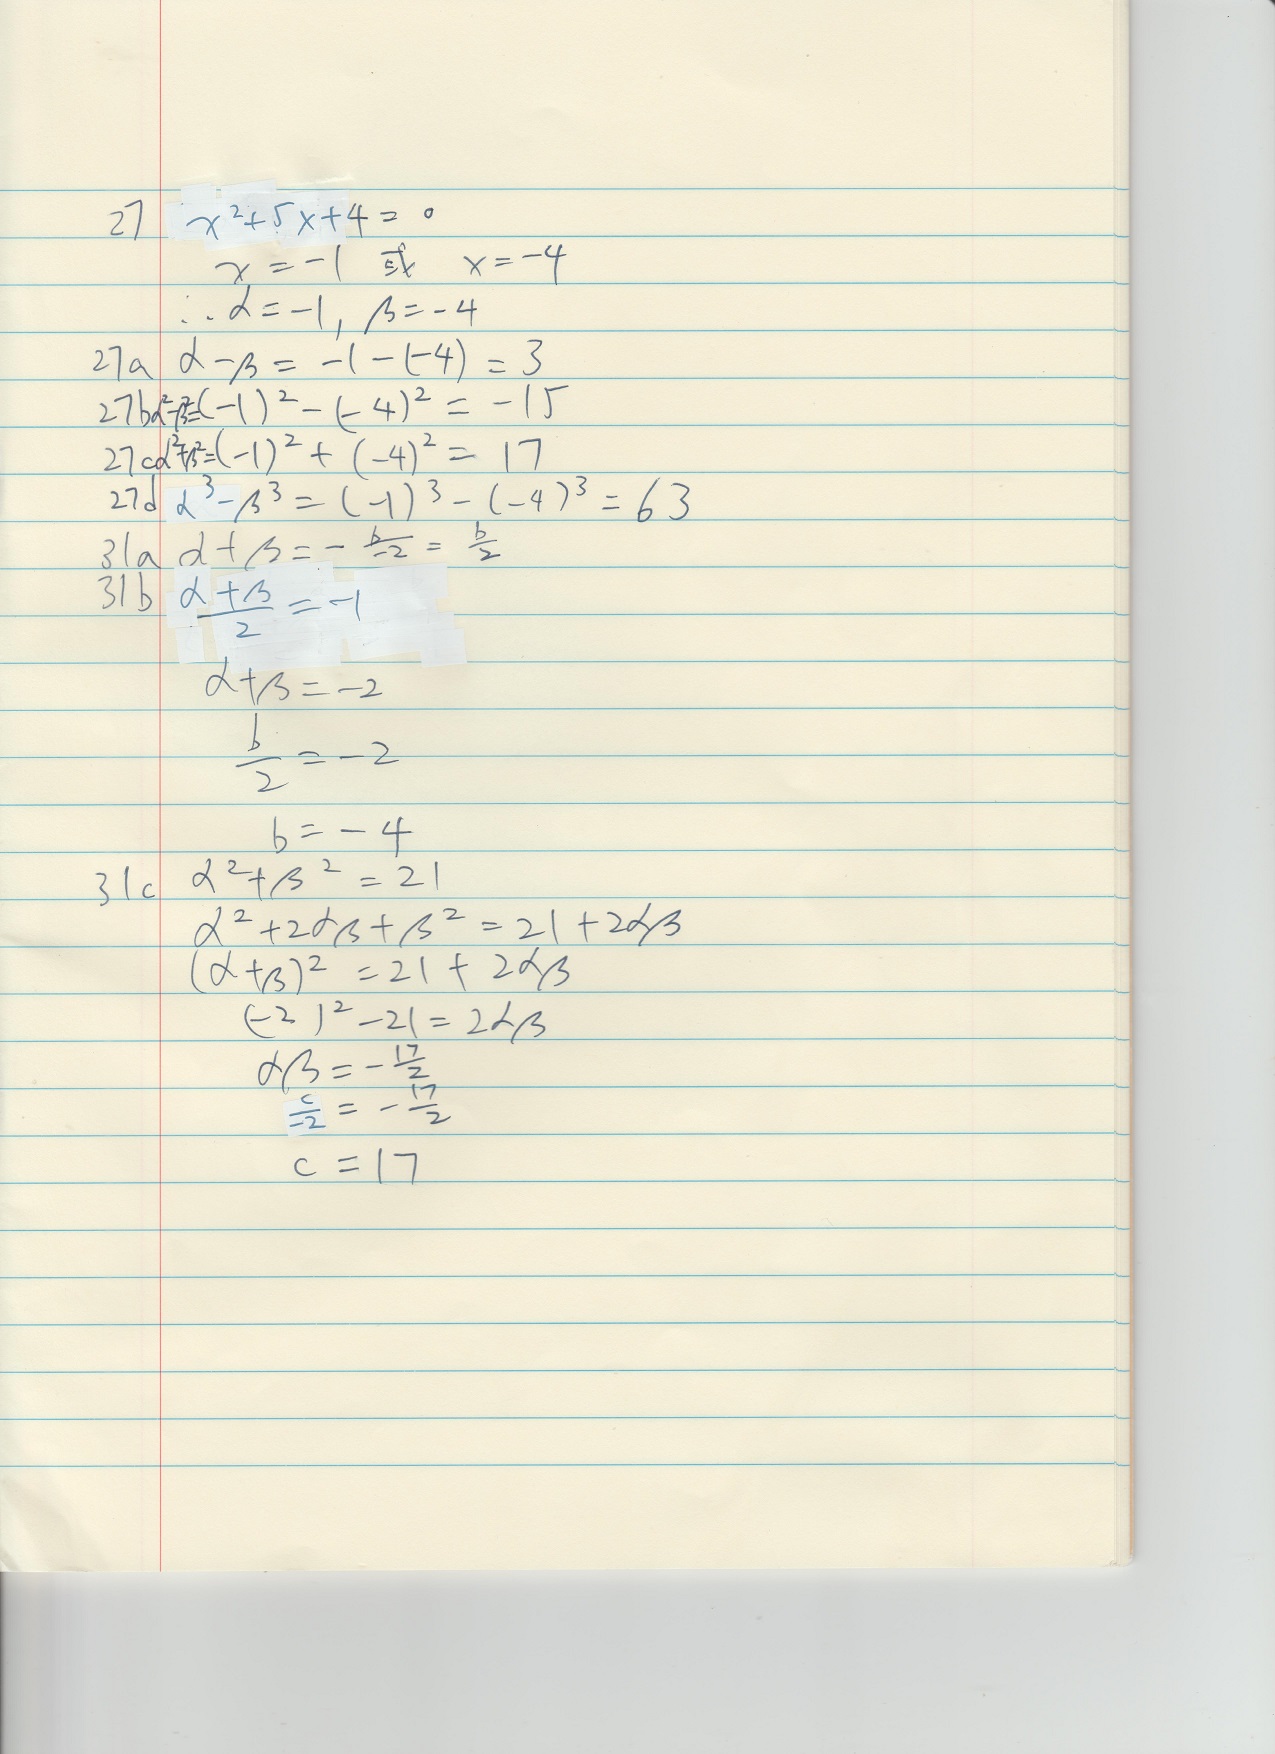 27 x²+5x+4=0
x=-1 或 x=-4
∴α=-1, β=-4
27a α-β=-1-(-4)=3
27b α²-β²=(-1)²-(-4)²=-15
27c α²+β²=(-1)²+(-4)²=17
27d α³-β³=(-1)³-(-4)³=63
31a α+β=-b/-2=b/2
31b (α+β)/2=-1
α+β=-2
b/2=-2
b=-4
31c α²+β²=21
α²+2αβ+β²=21+2αβ
(α+β)²=21+2αβ
(-2)²-21=2αβ
αβ=-17/2
c/-2=-17/2
c=17